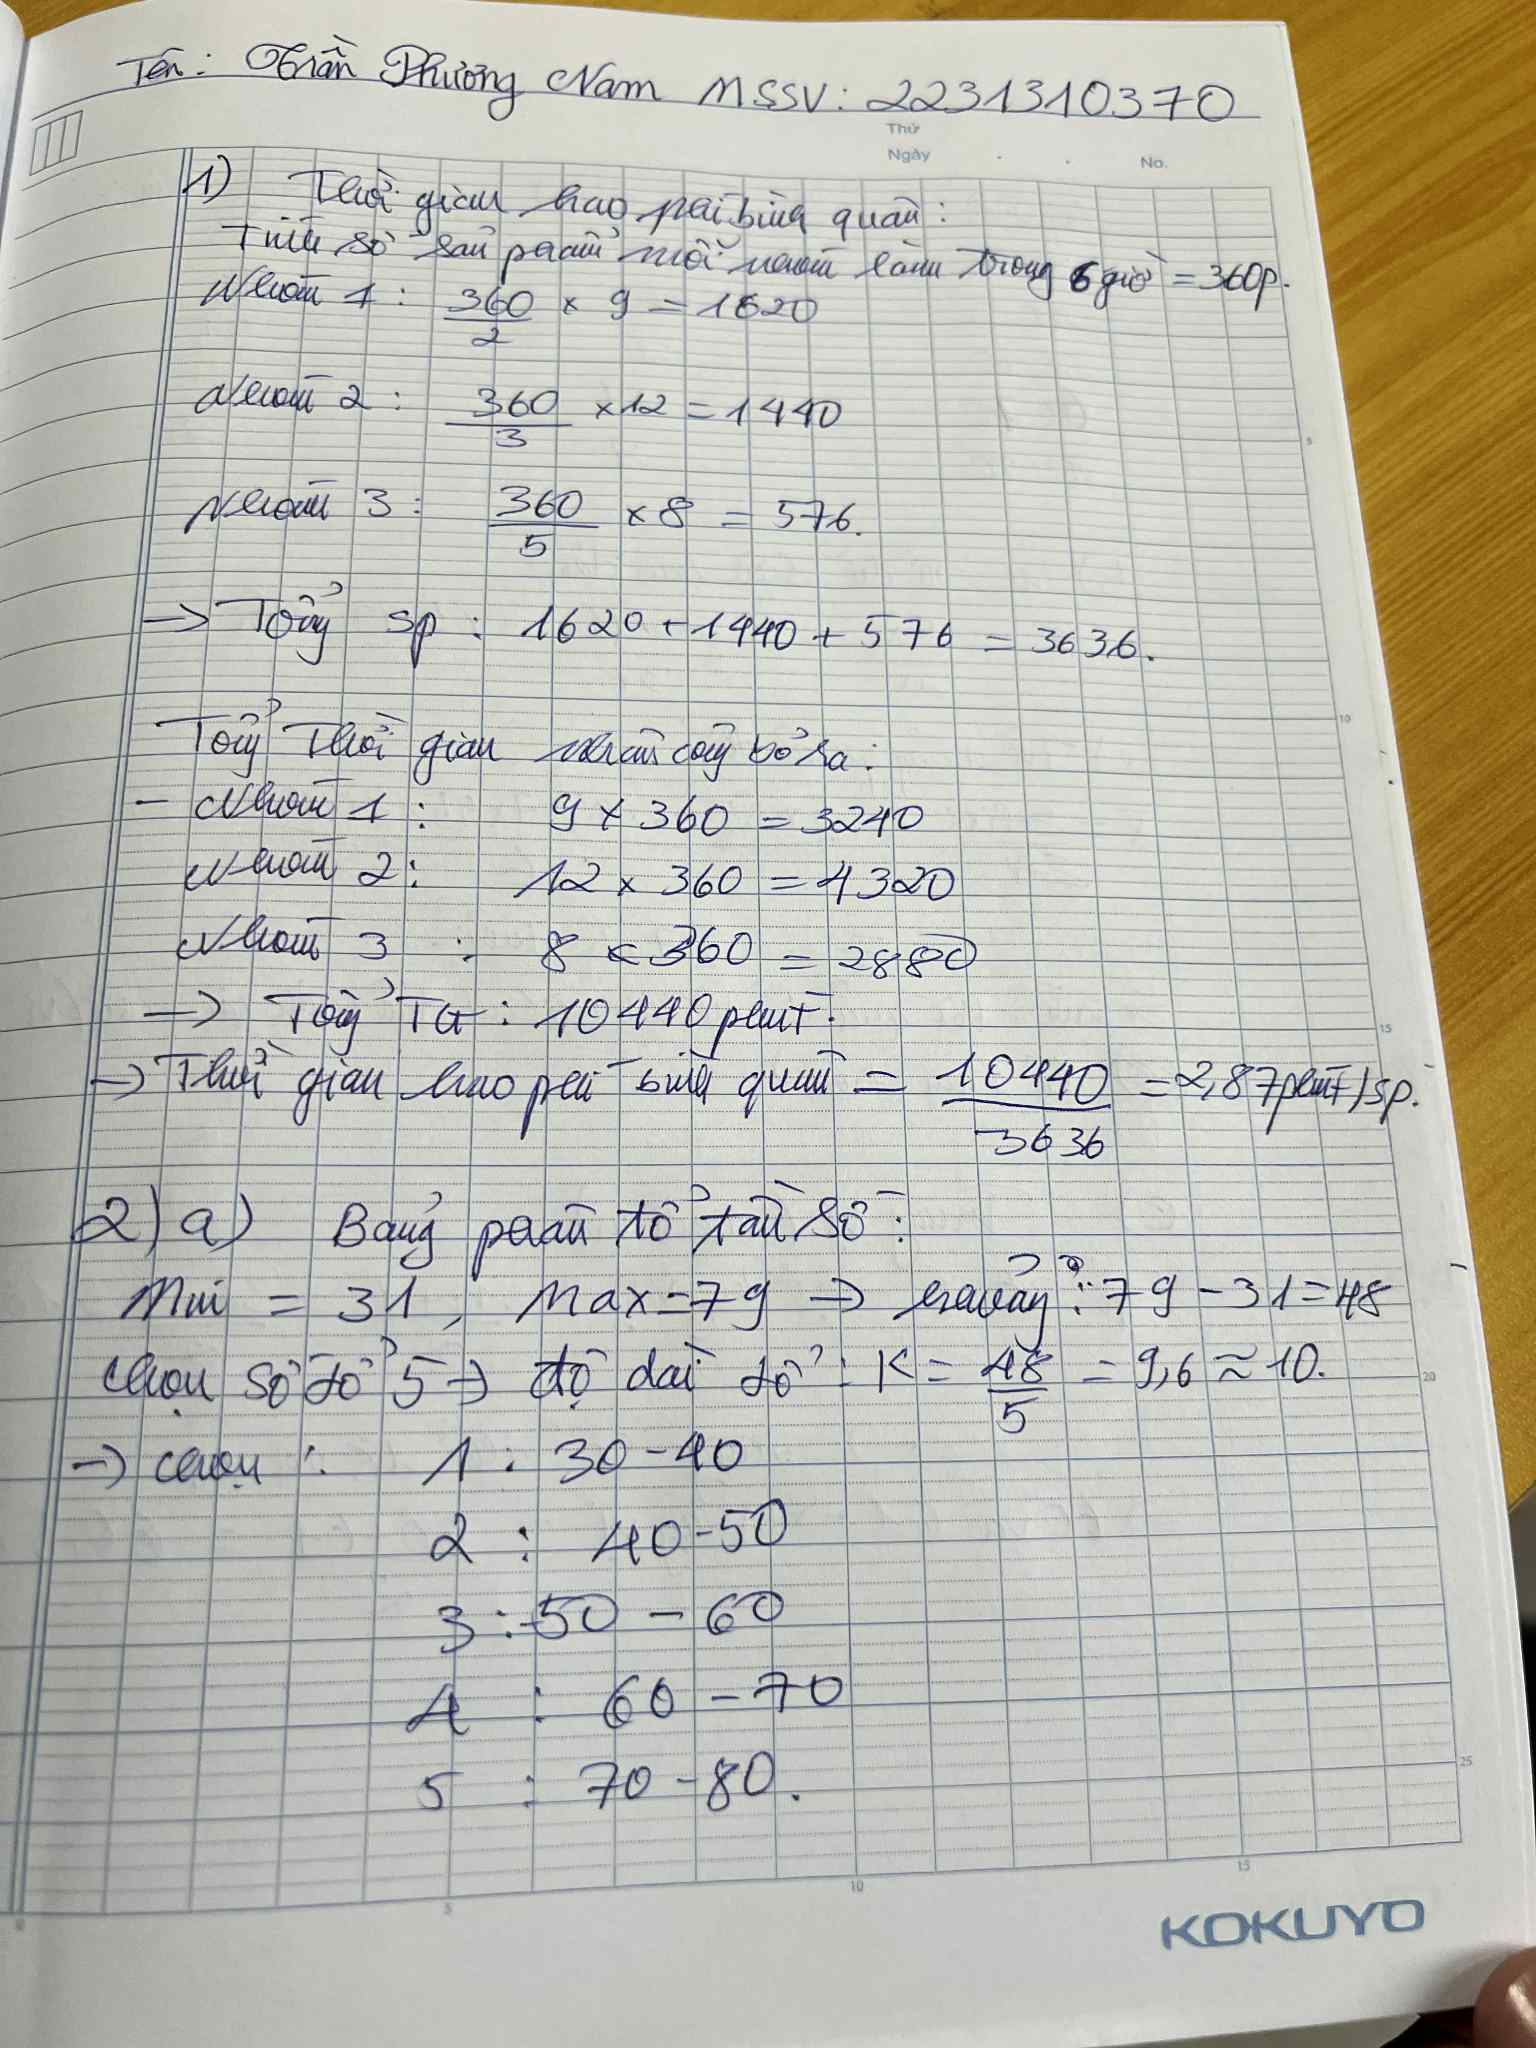 Tên: Trần Phương Nam MSSV: 2231310370
Thứ
Ngày . . No.
1) Thời gian hao phí bình quân:
Tính số sản phẩm mỗi nhóm làm trong 6 giờ = 360p.
Nhóm 1: 360/2 × 9 = 1620
Nhóm 2: 360/3 × 12 = 1440
Nhóm 3: 360/5 × 8 = 576.
→ Tổng sp: 1620 + 1440 + 576 = 3636.
Tổng Thời gian nhân công bỏ ra:
- Nhóm 1: 9 × 360 = 3240
Nhóm 2: 12 × 360 = 4320
Nhóm 3: 8 × 360 = 2880
→ Tổng TG: 10440 phút.
→ Thời gian hao phí bình quân = 10440/3636 = 2,87 phút/sp.
2) a) Bảng phân tổ tần số:
Min = 31, Max = 79 → khoảng: 79 - 31 = 48
Chọn số tổ 5 → độ dài tổ: K = 48/5 = 9,6 ≈ 10.
→ chọn: 1: 30 - 40
2: 40 - 50
3: 50 - 60
4: 60 - 70
5: 70 - 80.
5
10
15
20
25
0 5 10 15
KOKUYO